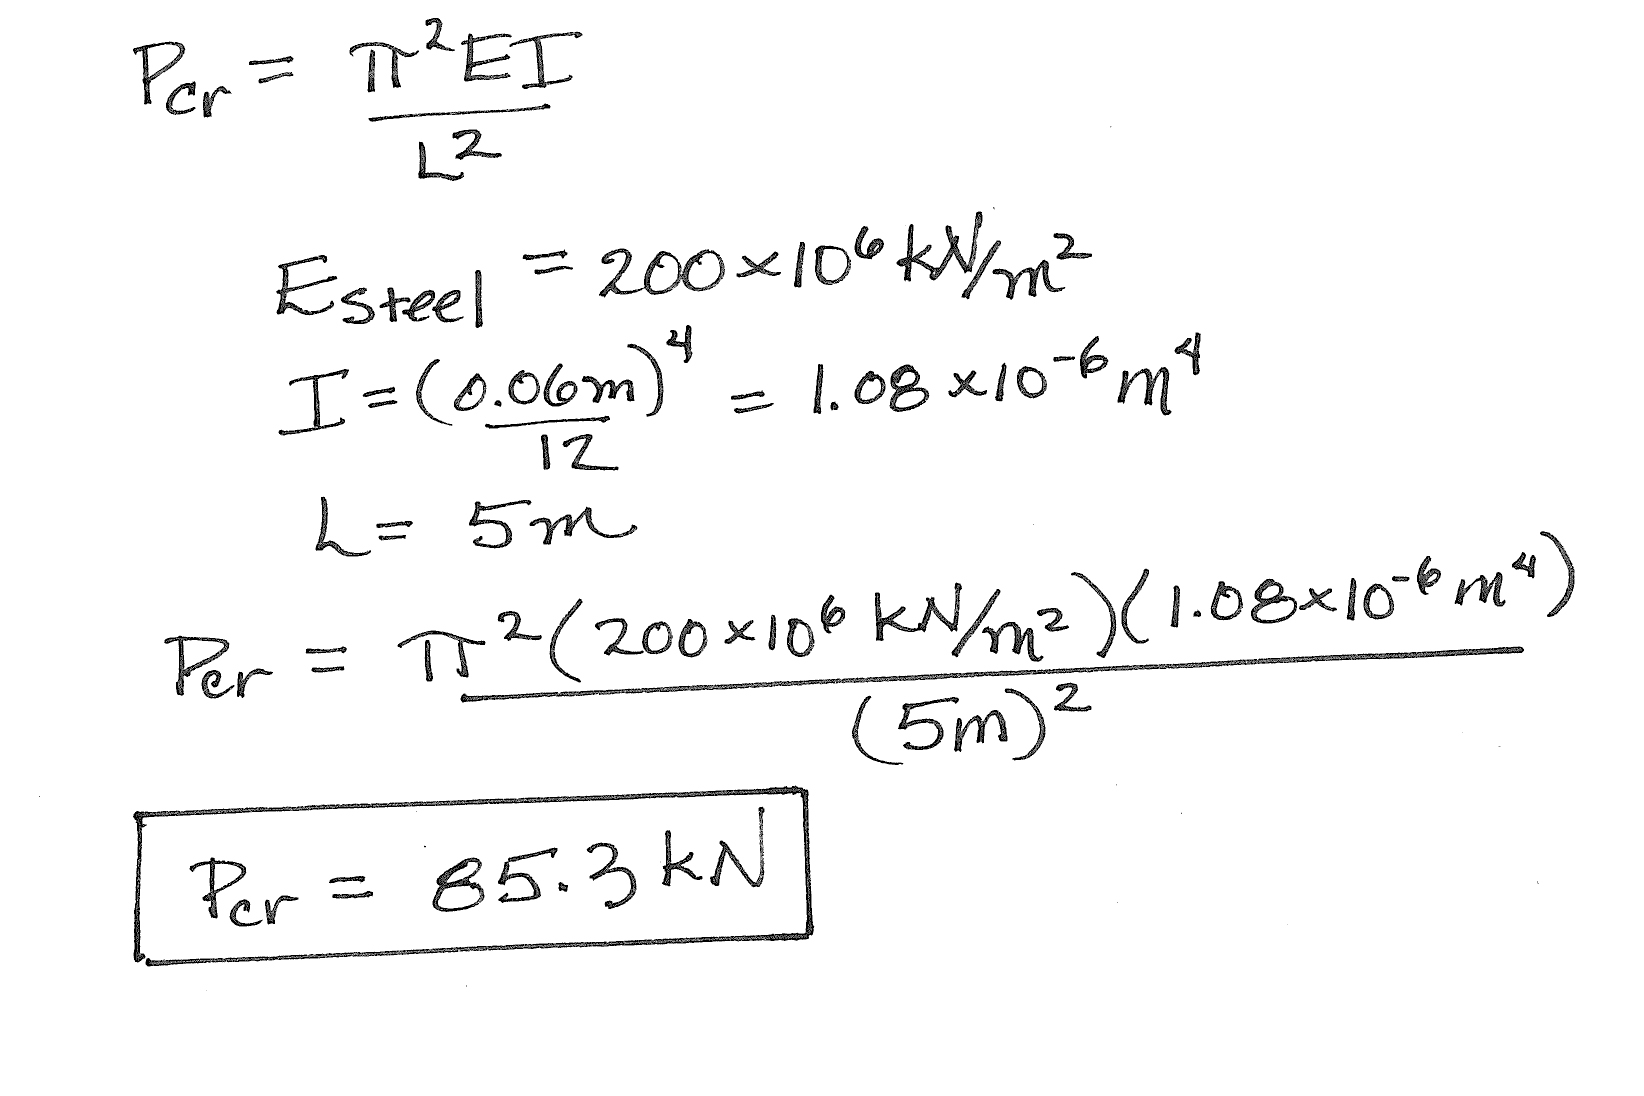 Pcr = π²EI / L²
Esteel = 200×10⁶ kN/m²
I = (0.06m)⁴ / 12 = 1.08×10⁻⁶ m⁴
L = 5m
Pcr = π²(200×10⁶ kN/m²)(1.08×10⁻⁶ m⁴) / (5m)²
Pcr = 85.3 kN